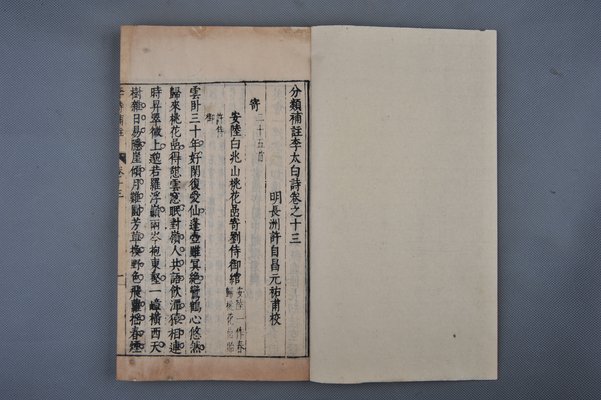 分類補註李太白詩卷之十三
明長洲許自昌元祐甫校
寄二十五首
安陸白兆山桃花巖寄劉侍御綰
雲臥三十年好閑復愛仙蓬壺雖冥絕鸞鶴心悠然
歸來桃花巖得憩雲窓眠對嶺人共語飲潭猿相連
時昇翠微上邈若羅浮巔兩岑抱東壑一嶂橫西天
樹雜日易隱崖傾月難圓芳草換野色飛蘿搖春煙